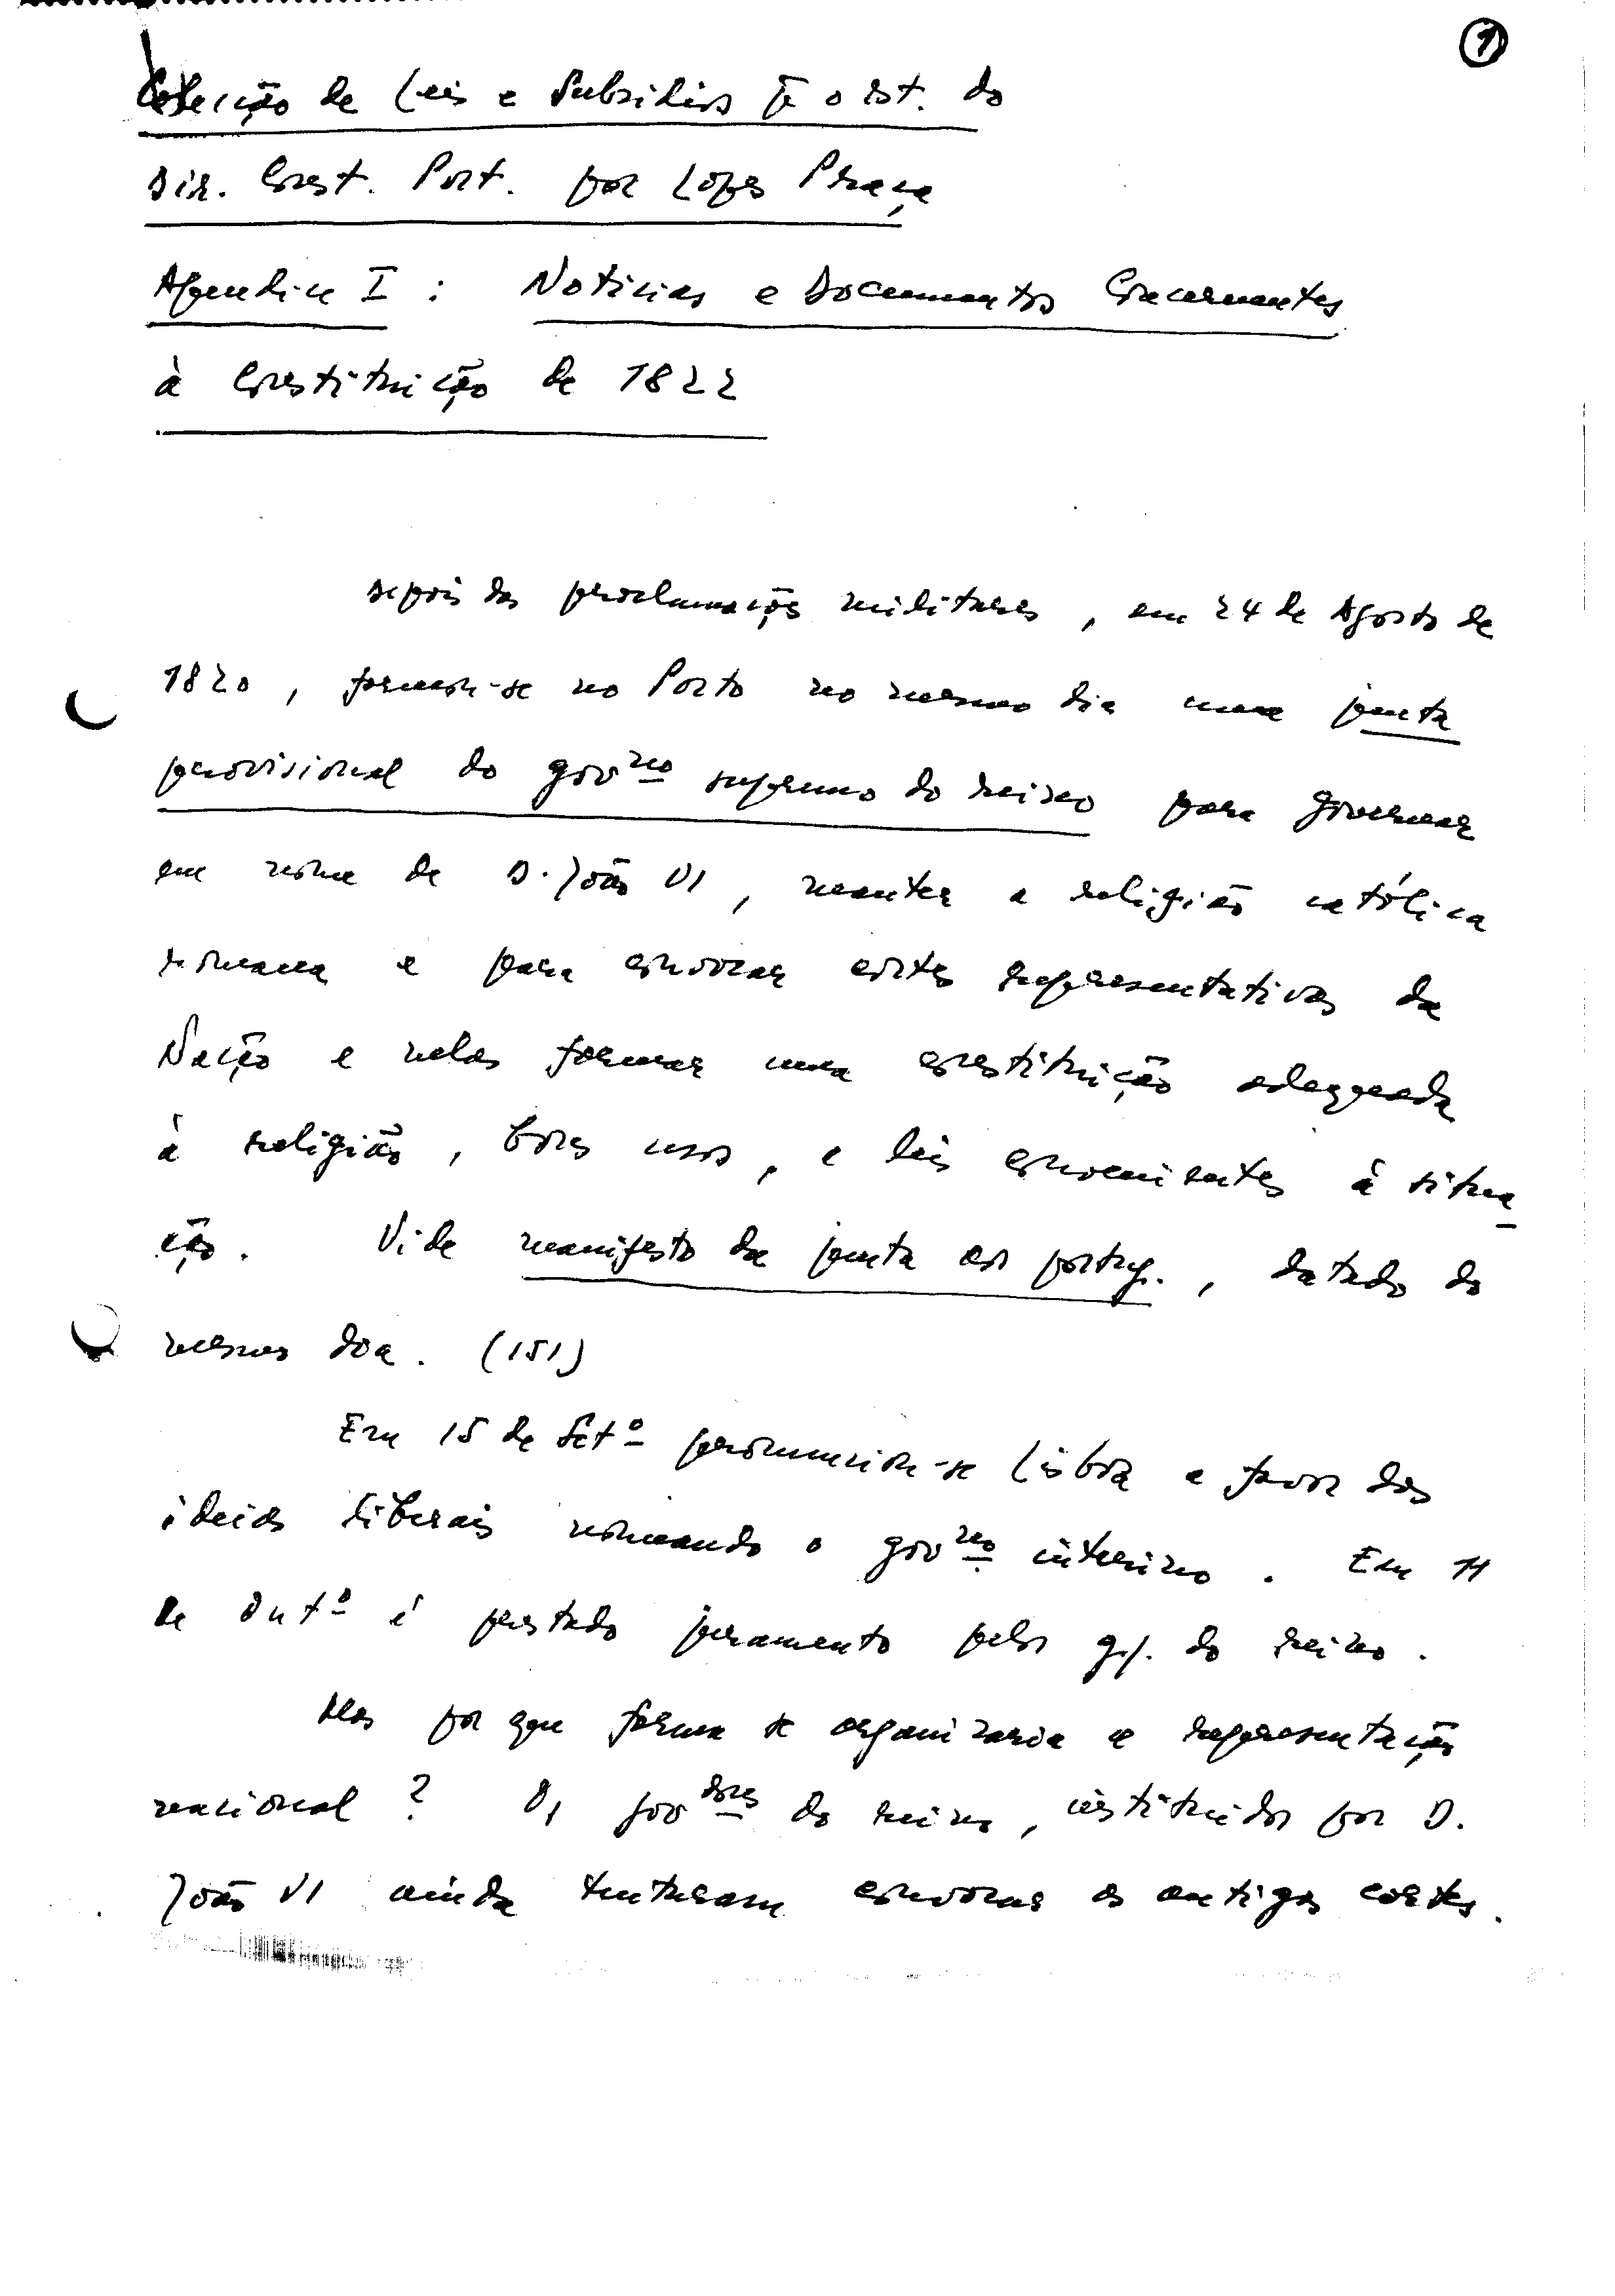 1
Colecção de Leis e Subsídios p̄ o est. do
Dir. Const. Port. por Lopes Praça
Apendice I : Noticias e Documentos Concernentes
à Constituição de 1822
Depois das proclamações militares, em 24 de Agosto de
1820, formou-se no Porto no mesmo dia uma junta
provisional do govno supremo do reino para governar
em nome de D. João VI, manter a religião católica
romana e para convocar cortes representativas da
Nação e nelas formar uma constituição adequada
à religião, bons usos, e leis convenientes à situa
ção. Vide manifesto da junta aos portug., datado do
mesmo dia. (151)
Em 15 de Setº pronunciou-se Lisboa a favor das
ideias liberais nomeando o govno interino. Em 11
de Outº é prestado juramento pelos do reino.
Mas por que forma se organizaria a representação
nacional ? Os govdores do reino, instituidos por D.
João VI ainda tentaram convocar as antigas cortes.